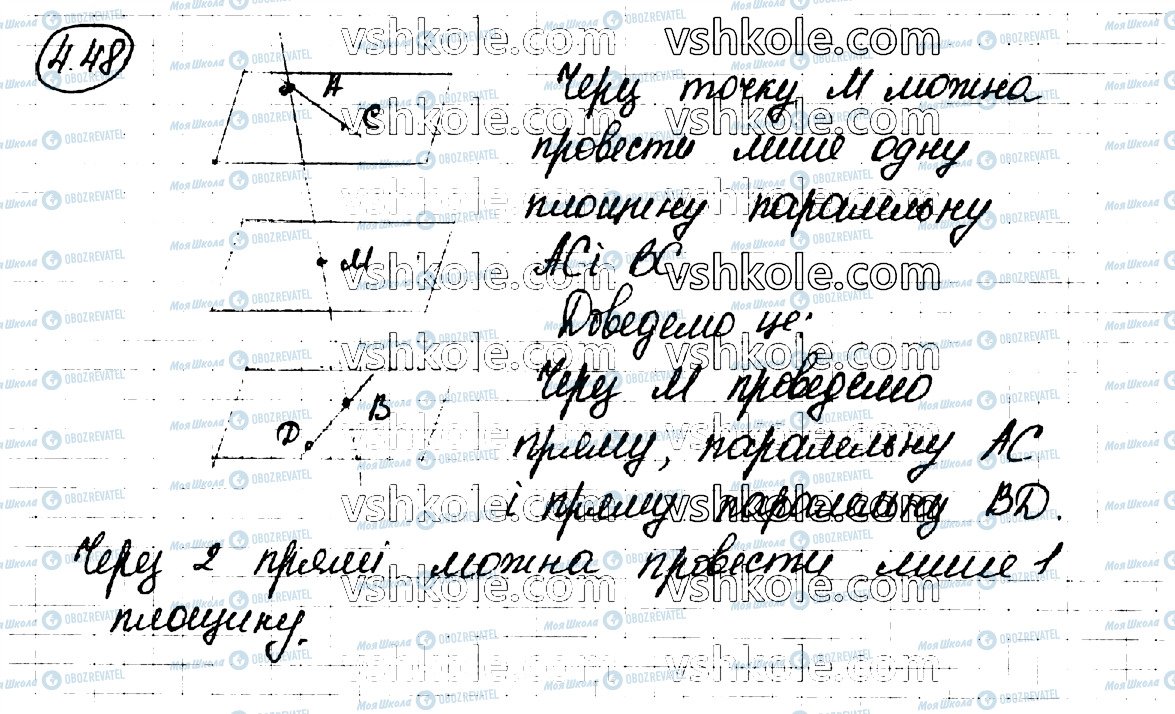 4.48
A
C
M
B
D
Через точку М можна
провести лише одну
площину паралельну
AC і BC
Доведемо це:
Через М проведемо
пряму, паралельну AC
і пряму паралельну BD.
Через 2 прямі можна провести лише 1
площину.
vshkole.com
Моя Школа OBOZREVATEL